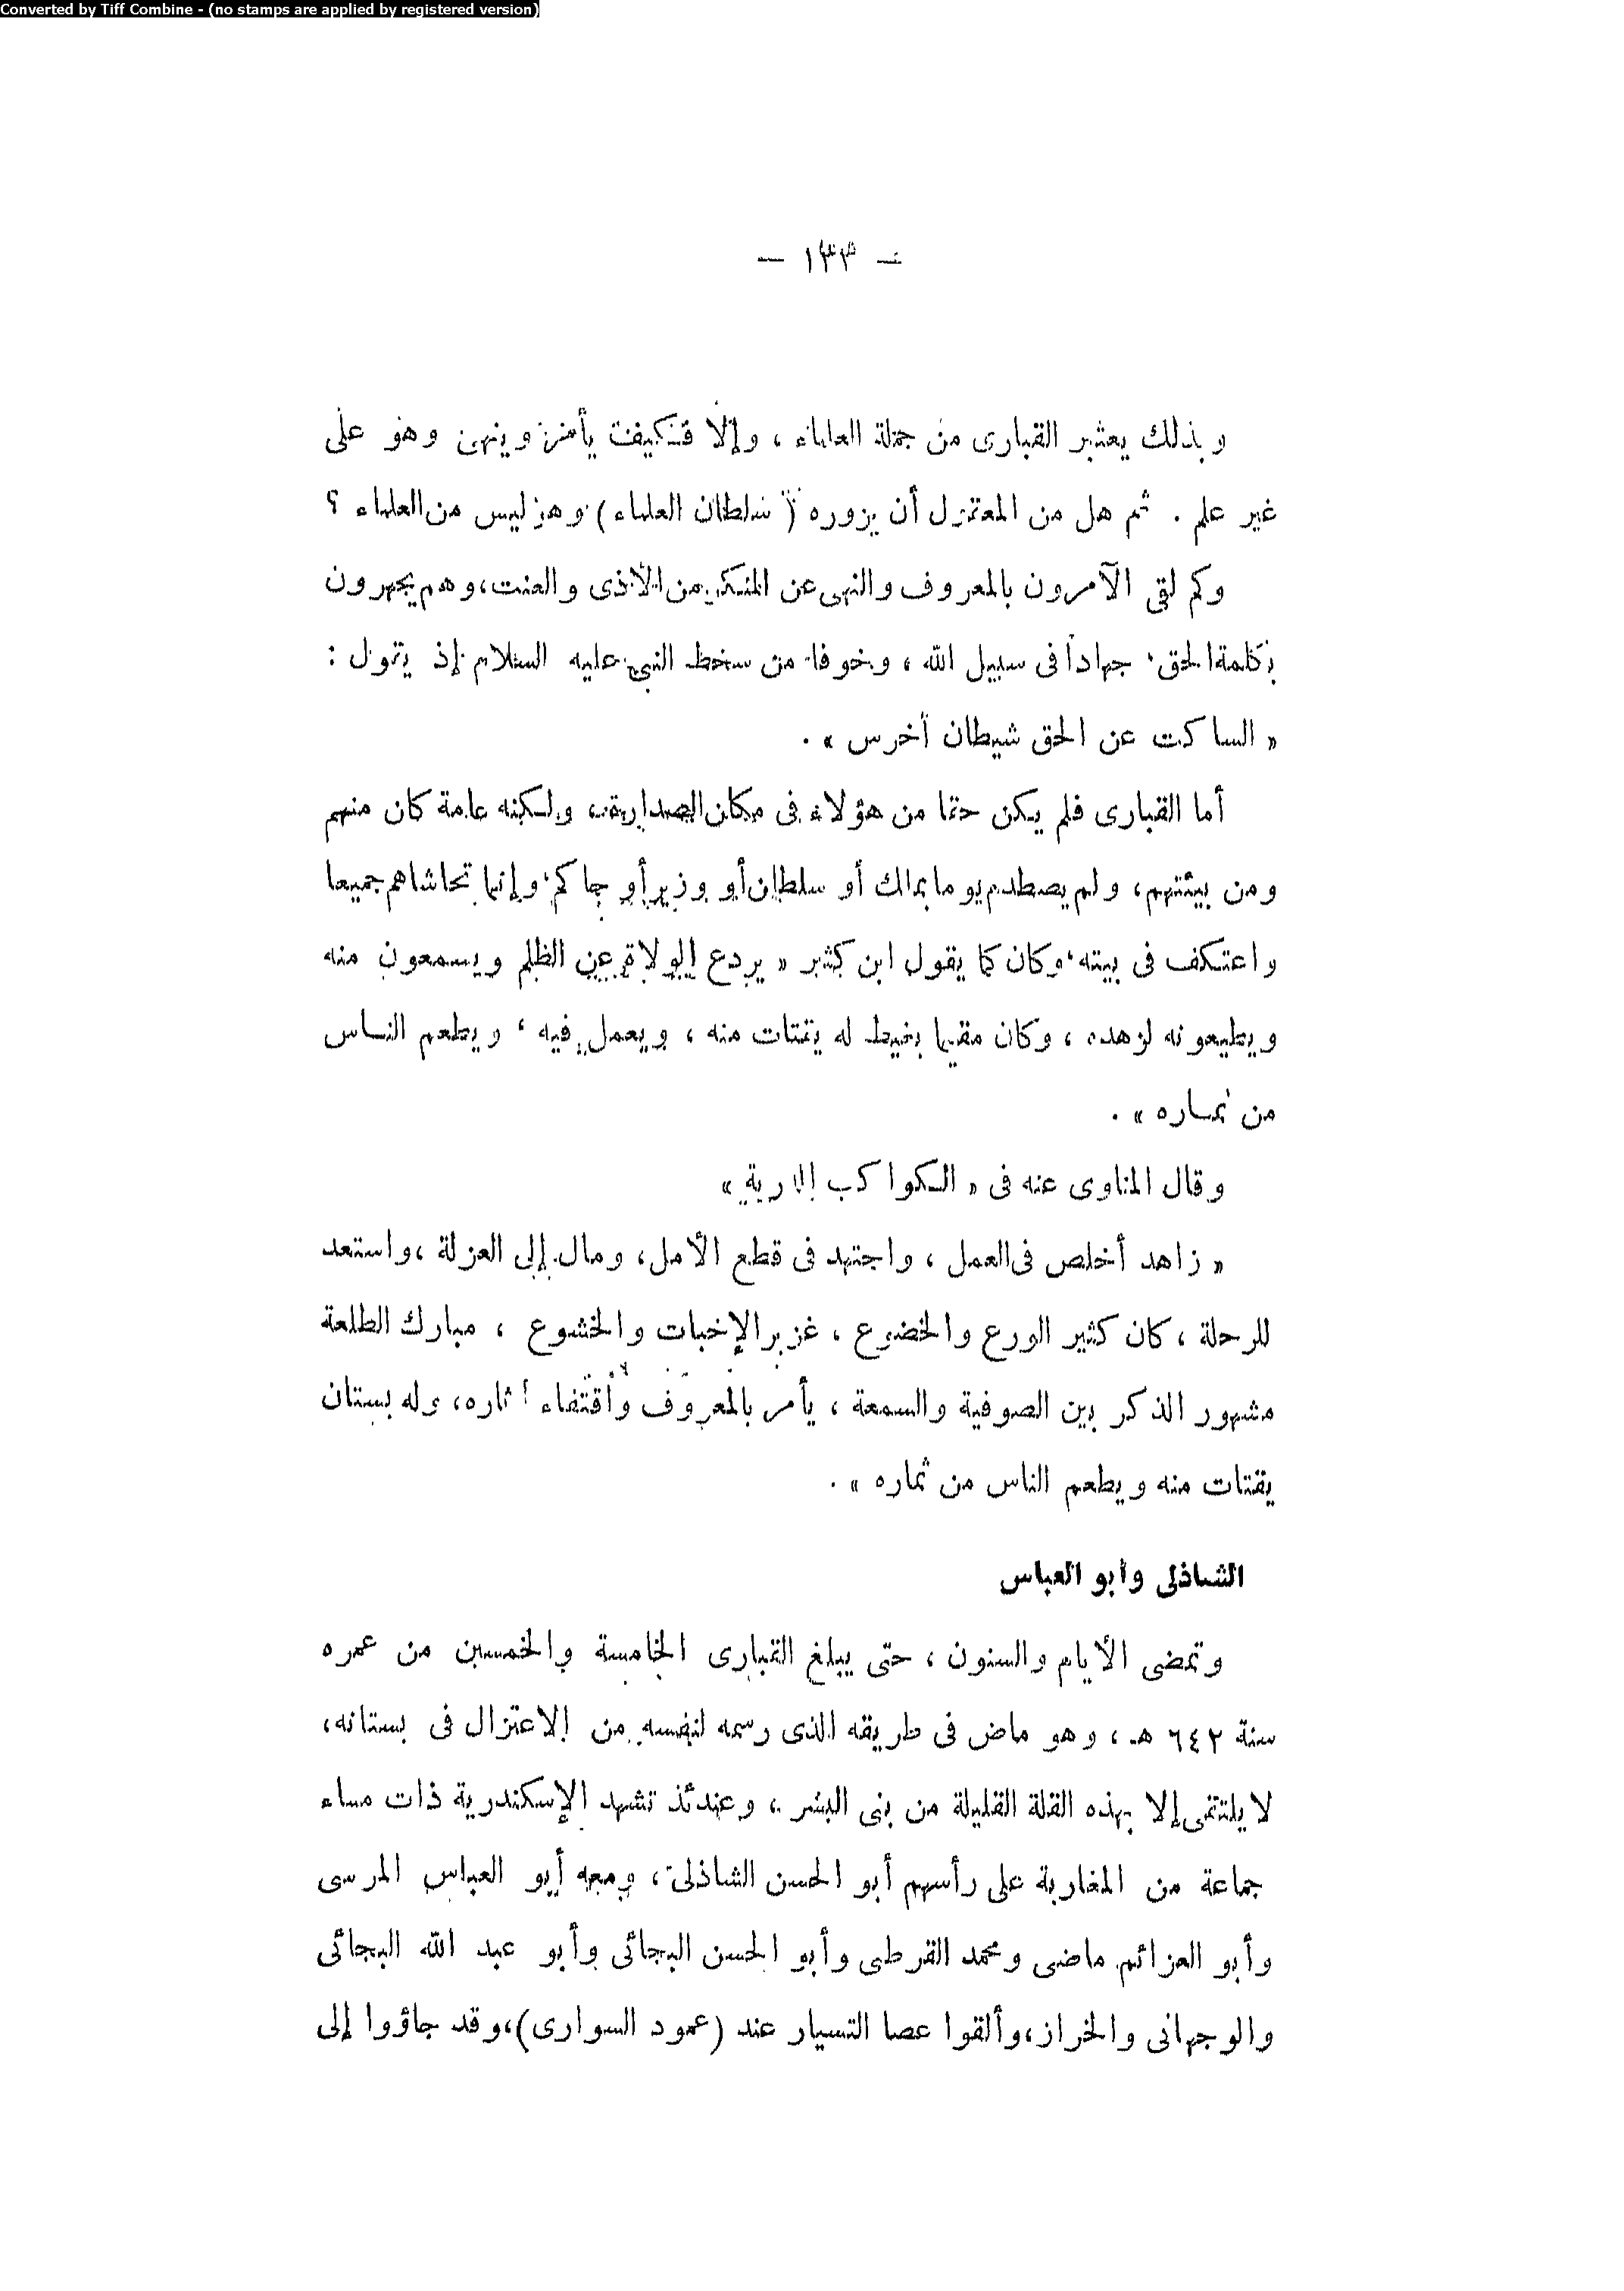 Converted by Tiff Combine - (no stamps are applied by registered version)
— ١٣٣ —
وبذلك يعتبر القبارى من جملة العلماء ، وإلا فكيف يأمر وينهى وهو على
غير علم . ثم هل من المعتزل أن يزوره ( سلطان العلماء ) وهو ليس من العلماء ؟
وكم لقى الآمرون بالمعروف والنهى عن المنكر من الأذى والعنت، وهم يجهرون
بكلمة الحق جهاداً فى سبيل الله ، وخوفا من سخط النبى عليه السلام إذ يقول :
« الساكت عن الحق شيطان أخرس » .
أما القبارى فلم يكن حتما من هؤلاء فى مكان الصدارة، ولكنه عامة كان منهم
ومن بيئتهم، ولم يصطدم يوما بمالك أو سلطان أو وزير أو حاكم، وإنما تحاشاهم جميعا
واعتكف فى بيته، وكان كما يقول ابن كثير « يردع الولاة عن الظلم ويسمعون منه
ويطيعونه لزهده ، وكان مقيما بغيط له يقتات منه ، ويعمل فيه ، ويطعم الناس
من ثماره » .
وقال المناوى عنه فى « الكواكب الدرية »
« زاهد أخلص فى العمل ، واجتهد فى قطع الأمل، ومال إلى العزلة ، واستعد
للرحلة ، كان كثير الورع والخضوع ، غزير الإخبات والخشوع ، مبارك الطلعة
مشهور الذكر بين الصوفية والسمعة ، يأمر بالمعروف واقتفاء آثاره، وله بستان
يقتات منه ويطعم الناس من ثماره » .
الشاذلى وأبو العباس
وتمضى الأيام والسنون ، حتى يبلغ القبارى الخامسة والخمسين من عمره
سنة ٦٤٢ هـ ، وهو ماض فى طريقه الذى رسمه لنفسه من الاعتزال فى بستانه،
لا يلتقى إلا بهذه القلة القليلة من بنى البشر ، وعندئذ تشهد الإسكندرية ذات مساء
جماعة من المغاربة على رأسهم أبو الحسن الشاذلى ، ومعه أبو العباس المرسى
وأبو العزائم ماضى ومحمد القرطبى وأبو الحسن البجائى وأبو عبد الله البجائى
والوجهانى والخراز، وألقوا عصا التسيار عند (عمود السوارى)، وقد جاؤوا إلى